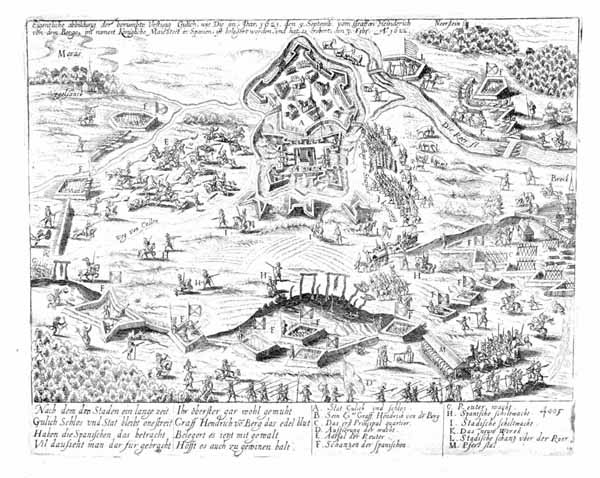 Eigentliche abbildung der berumpte Vestung Gulich, wie Die im Iar. 1621. den 5. Septemb. vom Graffen Heinderich
von dem Berge, in namen Königliche Maiestett in Spanien, ist belegert worden, und hat is erobert, den 3. Febr. A° 1622
Neerstein
Moras
Die Roer fl
Broch
Weg von Cöllen
Nach dem die Staden ein lange zeit
Gulich Schlos und Stat bleibt onefreit
Haben die Spanischen das betracht
Vil daussent man dar für gebracht
Ihr oberster gar wohl gemuht
Graff Hendrich vō Berg das edel blut
Belegert es jetzt mit gewalt
Hofft es auch zu gewinen balt.
A. Stat Gulich und Schlos
B. Sein Ex. Graff Hendrich von dē Berg
C. Das erst Principal quartier
D. Auffürung der wacht
E. Aasfal der Reuter
F. Schantzen der Spanischen
G. Reuter wacht
H. Spanische schiltwacht
I. Stadische schiltwacht
K. Das neuwe Werck
L. Stadische schantz uber der Roer
M. Pfert stal
4005